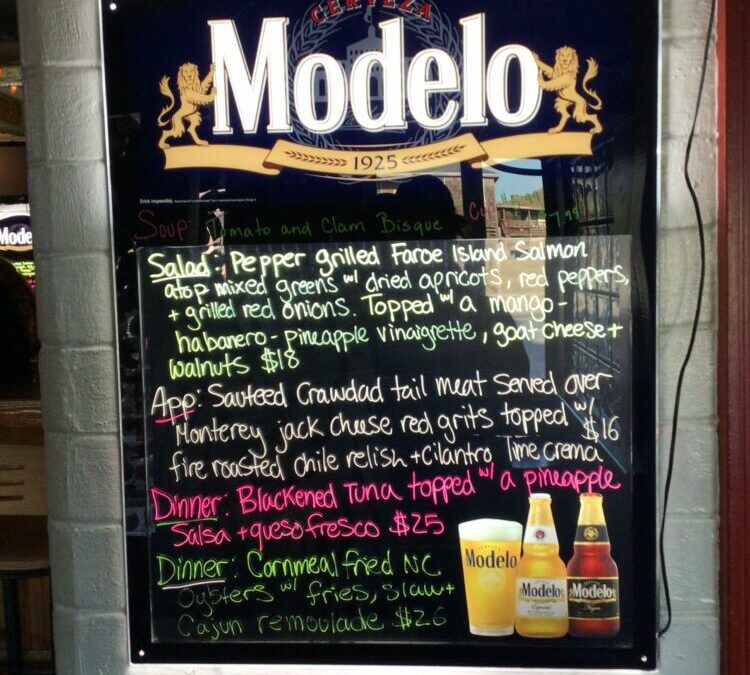 CERVEZA
Modelo
1925
Drink responsibly.
Soup: Tomato and Clam Bisque
Salad: Pepper grilled Faroe Island Salmon
atop mixed greens w/ dried apricots, red peppers,
+ grilled red onions. Topped w/ a mango-
habanero-pineapple vinaigrette, goat cheese +
walnuts $18
App: Sauteed Crawdad tail meat served over
Monterey jack cheese red grits topped w/ $16
fire roasted chile relish + Cilantro lime crema
Dinner: Blackened Tuna topped w/ a pineapple
Salsa + queso fresco $25
Dinner: Cornmeal fried NC
Oysters w/ fries, slaw +
Cajun remoulade $26
Modelo
Modelo
Especial
Modelo
Negra
Mode